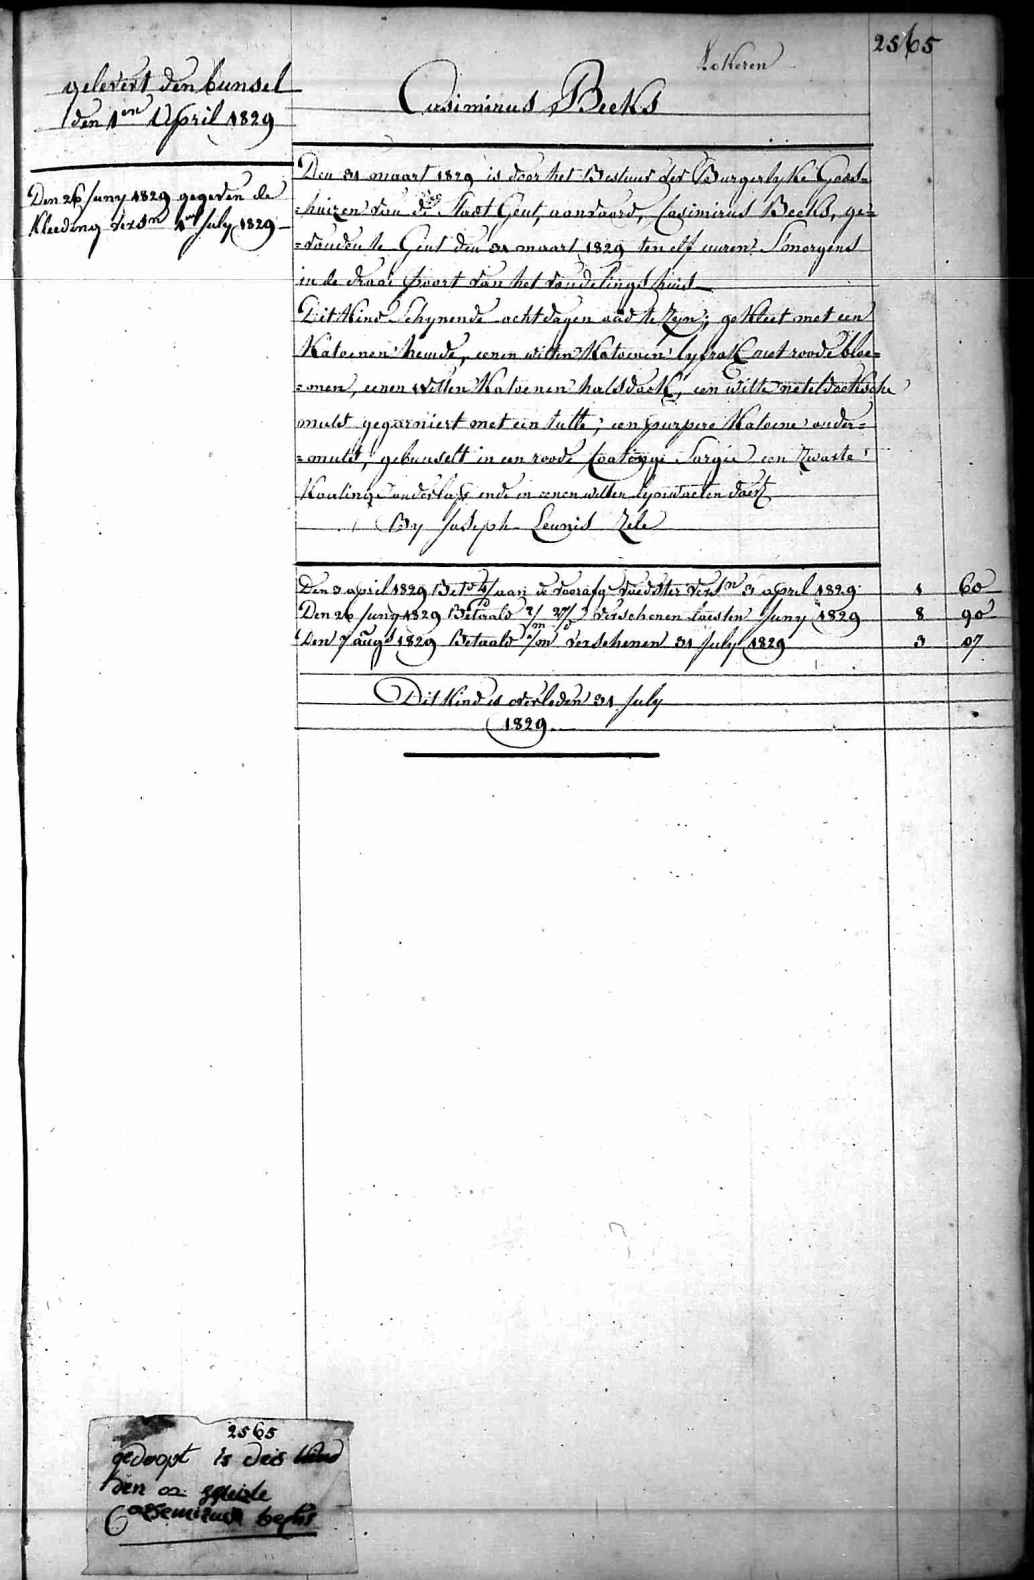 2565
Lokeren
gelevert den bunsel
den 1en April 1829
Casimirus Beeks
Den 26 Juny 1829 gegeven de
Kleeding versn 1en July 1829
Den 31 maart 1829 is door het Bestuur der Burgerlyke Gods-
-huizen van de Stadt Gent, aanvaard, Casimirus Beeks, ge-
-vonden te Gent den 31 maart 1829 ten elf uuren Smorgens
in de draai poort van het vondelings huis
Dit Kind Schynende acht dagen oud te Zyn; gekleet met een
Katoenen hemde, eenen witten Katoenen lyfrok met roode bloe-
-men, eenen witten Katoenen halsdoek, een witte neteldoeksche
muts gegarniert met een tulle; een purpere Katoene onder-
-muts, gebunselt in een roode Sargie een Zwarte
ende in eenen witten
By Joseph Leunis Zele
Den 3 april 1829 aan de voedster versn 31 april 1829 1 60
Den 26 Juny 1829 Betaald verschenen Juny 1829 8 90
Den 7 augs 1829 Betaald verschenen 31 July 1829 3 07
Dit Kind is overleden 31 July
1829
2565
gedoopt is deis kind
den
Casemirus beeks